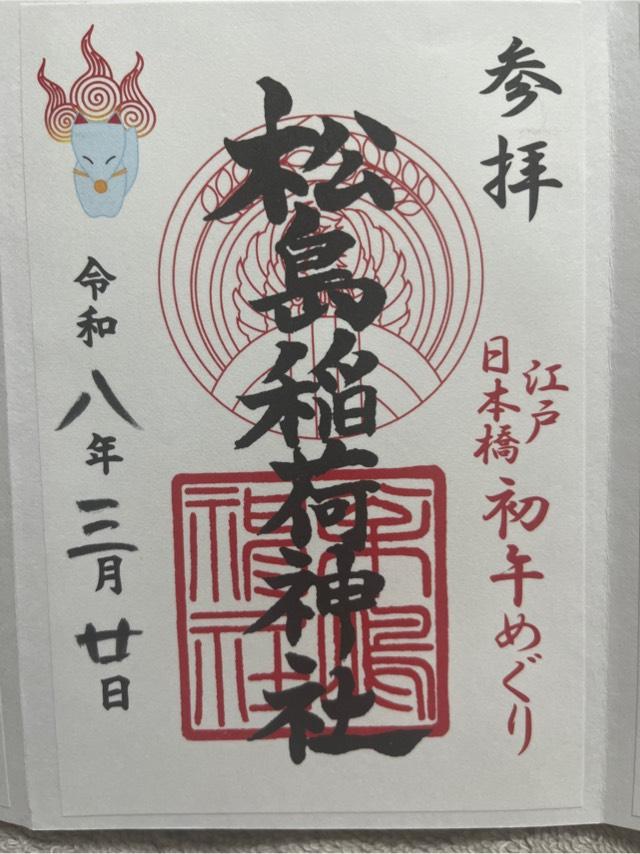 参拝
江戸
日本橋
初午めぐり
松島稲荷神社
令和八年三月廿日